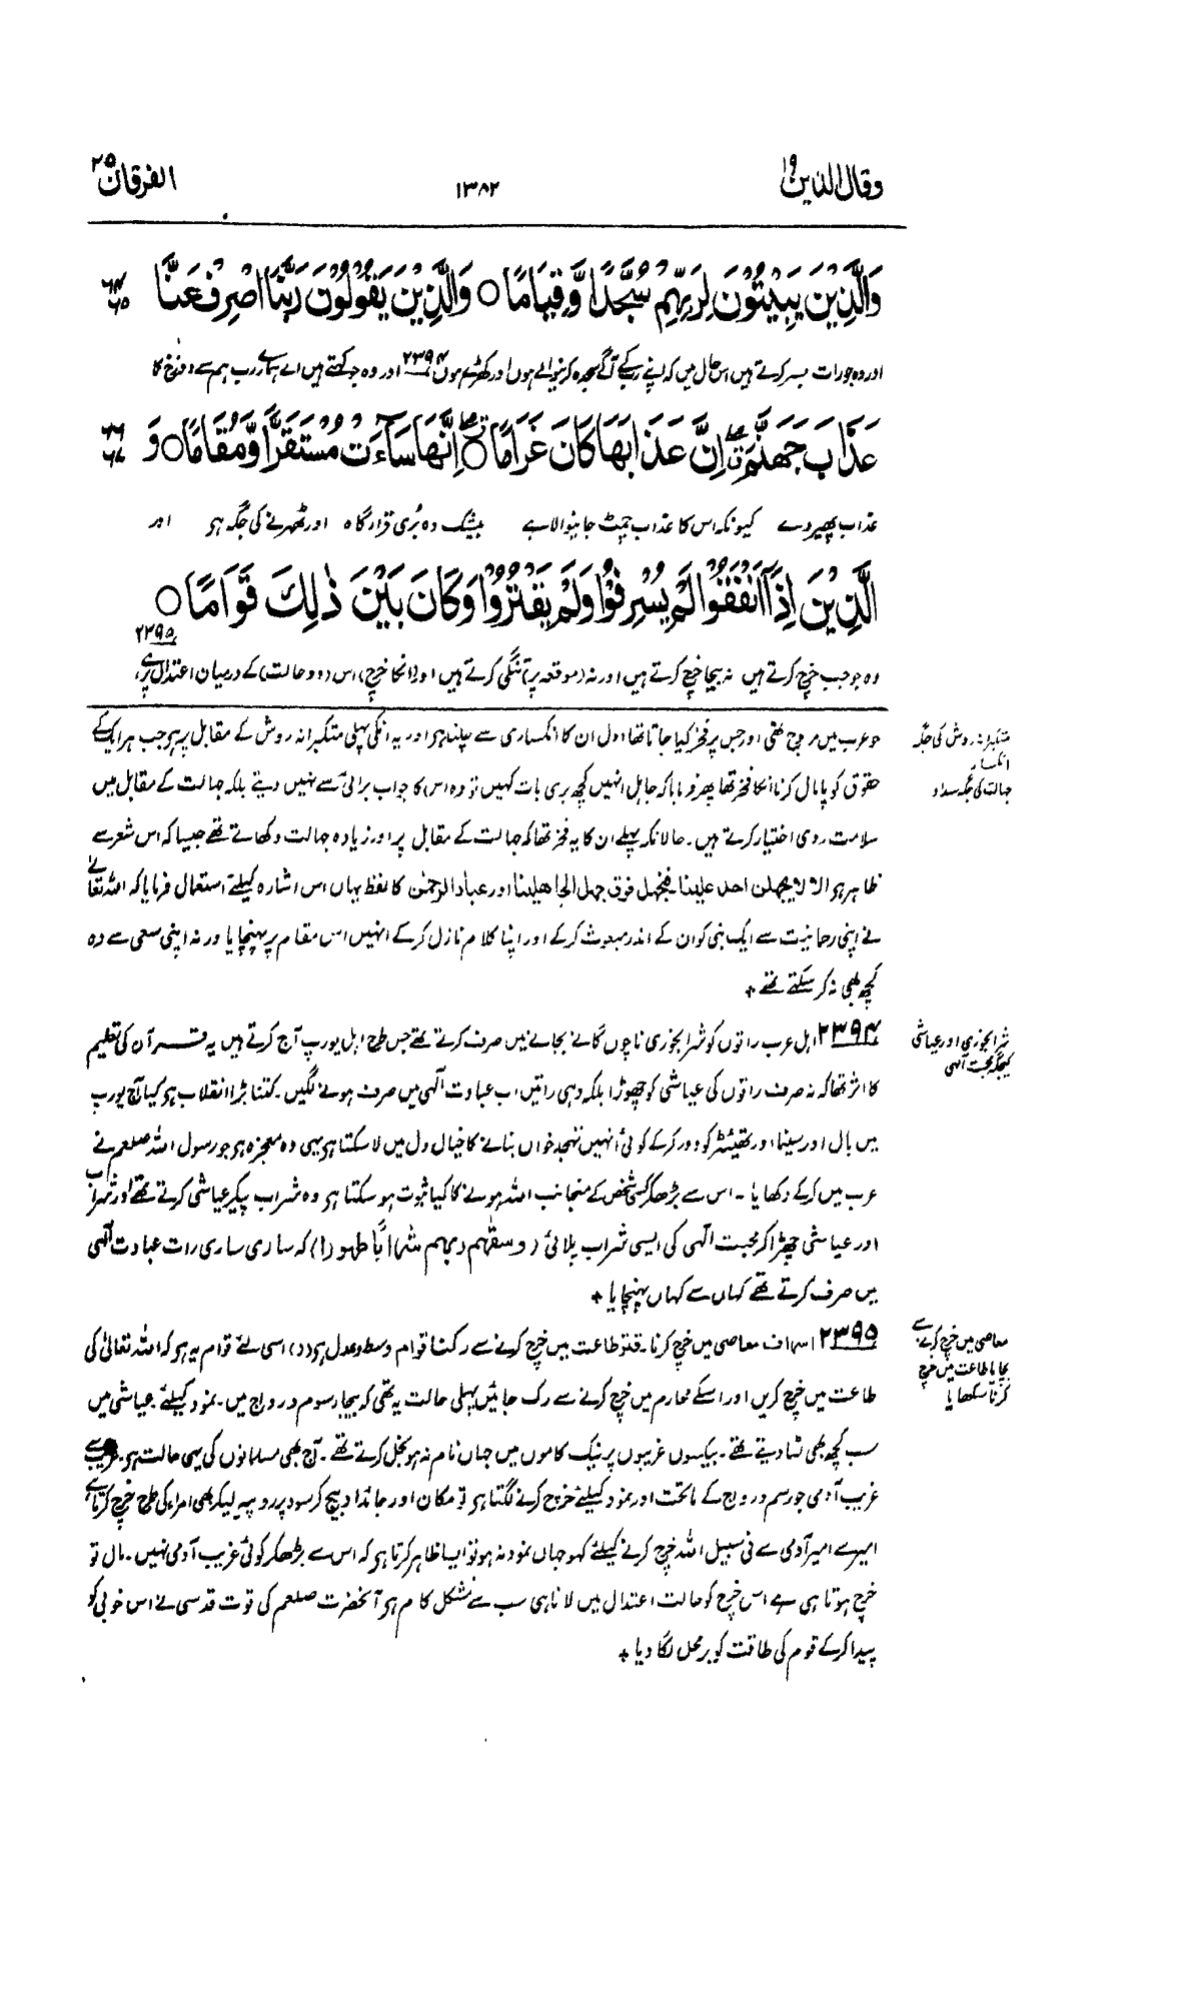 وقال الذین ۱۹
۱۳۸۲
الفرقان ۲۵
وَالَّذِيْنَ يَبِيْتُوْنَ لِرَبِّهِمْ سُجَّدًا وَّقِيَامًا ○ وَالَّذِيْنَ يَقُوْلُوْنَ رَبَّنَا اصْرِفْ عَنَّا
۶۴
۶۵
اور وہ جو رات بسر کرتے ہیں اس حال میں کہ اپنے رب کے آگے سجدہ کرنیوالے ہوں اور کھڑے ہوں ۲۳۹۴ اور وہ جو کہتے ہیں اے ہمارے رب ہم سے دوزخ کا
عَذَابَ جَهَنَّمَ ۖ اِنَّ عَذَابَهَا كَانَ غَرَامًا ○ اِنَّهَا سَآءَتْ مُسْتَقَرًّا وَّمُقَامًا ○ وَ
۶۶
۶۷
عذاب پھیر دے کیونکہ اس کا عذاب چمٹ جانیوالا ہے بیشک وہ بُری قرار گاہ اور ٹھہرنے کی جگہ ہو اور
الَّذِيْنَ اِذَآ اَنْفَقُوْا لَمْ يُسْرِفُوْا وَلَمْ يَقْتُرُوْا وَكَانَ بَيْنَ ذٰلِكَ قَوَامًا ○
۲۳۹۵
وہ جو جب خرچ کرتے ہیں نہ بیجا خرچ کرتے ہیں اور نہ (موقعہ پر) تنگی کرتے ہیں اور (انکا خرچ) اس (دو حالت) کے درمیان اعتدال پر ہے
جو عرب میں مروج تھی اور جس پر فخر کیا جاتا تھا اول ان کا انکساری سے چلنا ہو اور یہ انکی پہلی متکبرانہ روش کے مقابل پر ہو جب ہر ایک کے
حقوق کو پامال کرنا انکا فخر تھا پھر فرمایا کہ جاہل انہیں کچھ بری بات کہیں تو وہ اس کا جواب برائی سے نہیں دیتے بلکہ جہالت کے مقابل میں
سلامت روی اختیار کرتے ہیں۔ حالانکہ پہلے ان کا یہ فخر تھا کہ جہالت کے مقابل پر اور زیادہ جہالت دکھاتے تھے جیسا کہ اس شعر سے
ظاہر ہو الا لا یجھلن احد علینا فنجھل فوق جھل الجاھلینا اور عباد الرحمٰن کا لفظ یہاں اس اشارہ کیلئے استعمال فرمایا کہ اللہ تعالےٰ
نے اپنی رحمانیت سے ایک نبی کو ان کے اندر مبعوث کر کے اور اپنا کلام نازل کر کے انہیں اس مقام پر پہنچایا ورنہ اپنی سعی سے وہ
کچھ بھی نہ کر سکتے تھے +
متکبرانہ روش کی جگہ
انکسار
جہالت کی جگہ سداد
۲۳۹۴ اہل عرب راتوں کو شرابخوری ناچوں گانے بجانے میں صرف کرتے تھے جس طرح اہل یورپ آج کرتے ہیں یہ قرآن کی تعلیم
کا اثر تھا کہ نہ صرف راتوں کی عیاشی کو چھوڑا بلکہ وہی راتیں اب عبادت الٰہی میں صرف ہونے لگیں۔ کتنا بڑا انقلاب ہو کیا آج یورپ
میں بال اور سینما اور تھیئٹر کو دور کر کے کوئی انہیں تہجد خواں بنانے کا خیال دل میں لا سکتا ہو یہی وہ معجزہ ہو جو رسول اللہ صلعم نے
عرب میں کر کے دکھایا۔ اس سے بڑھ کر کسی شخص کے منجانب اللہ ہونے کا کیا ثبوت ہو سکتا ہو وہ شراب پیکر عیاشی کرتے تھے اور شراب
اور عیاشی چھڑا کر محبت الٰہی کی ایسی شراب پلائی (وسقٰھم ربھم شرابًا طھورا) کہ ساری ساری رات عبادت الٰہی
میں صرف کرتے تھے کہاں سے کہاں پہنچایا +
شرابخوری اور عیاشی
کی جگہ محبت الٰہی
۲۳۹۵ اسراف معاصی میں خرچ کرنا۔ قتر طاعت میں خرچ کرنے سے رکنا قوام وسط و عدل ہو (د) اسی لئے قوام یہ ہو کہ اللہ تعالیٰ کی
طاعت میں خرچ کریں اور اسکے محارم میں خرچ کرنے سے رک جائیں پہلی حالت یہ تھی کہ بیجا رسوم و رواج میں۔ نمود کیلئے عیاشی میں
سب کچھ بھی لٹا دیتے تھے۔ بیکسوں غریبوں پر نیک کاموں میں جہاں نام نہ ہو بخل کرتے تھے۔ آج بھی مسلمانوں کی یہی حالت ہو غریب سے
غریب آدمی جو رسم و رواج کے ماتحت اور نمود کیلئے خرچ کرنے لگتا ہو تو مکان اور جائداد بیچ کر سود پر روپیہ لیکر بھی امراء کی طرح خرچ کرتا ہے
امیر سے امیر آدمی سے فی سبیل اللہ خرچ کرنے کیلئے کہو جہاں نمود نہ ہو تو ایسا ظاہر کرتا ہو کہ اس سے بڑھکر کوئی غریب آدمی نہیں۔ مال تو
خرچ ہوتا ہی ہے اس خرچ کو حالت اعتدال میں لانا ہی سب سے مشکل کام ہو آنحضرت صلعم کی قوت قدسی نے اس خوبی کو
پیدا کر کے قوم کی طاقت کو بر محل لگا دیا +
معاصی میں خرچ کرنے سے
بچایا طاعت میں خرچ
کرنا سکھایا